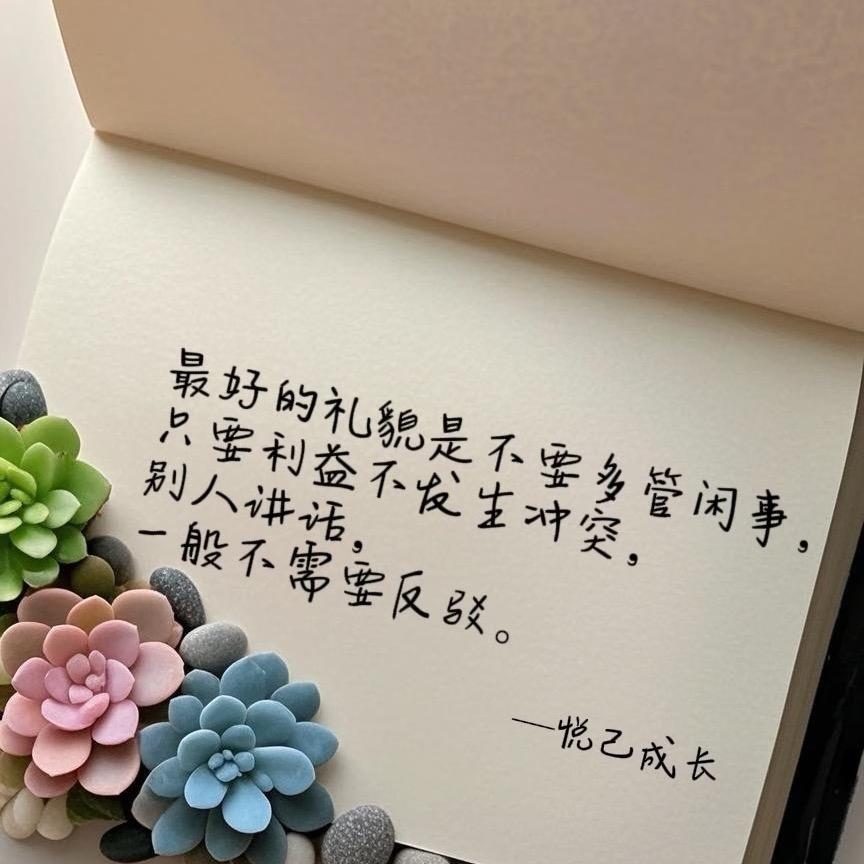 最好的礼貌是不要多管闲事，
只要利益不发生冲突，
别人讲话，
一般不需要反驳。
—悦己成长